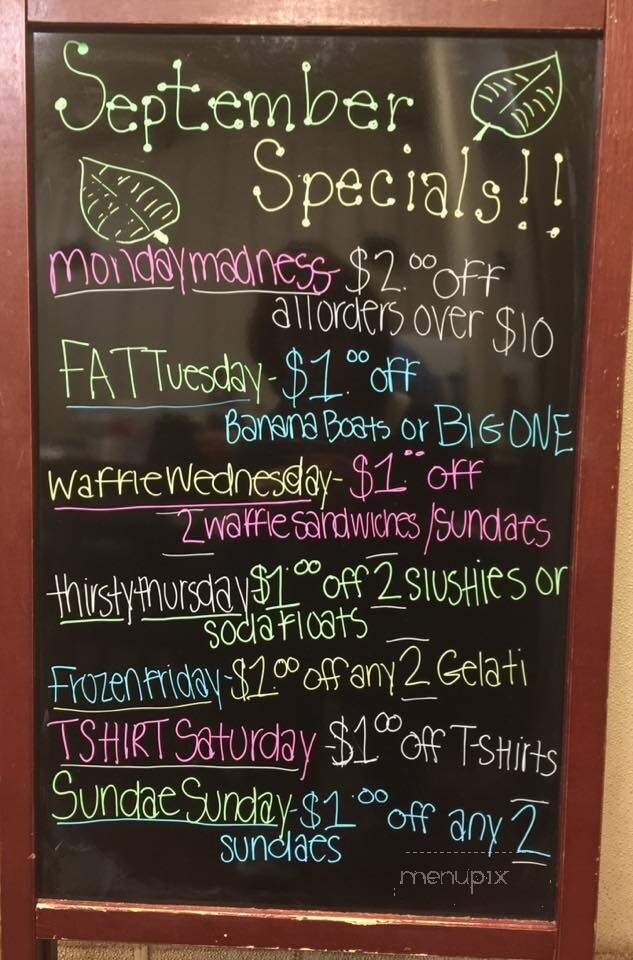 September
Specials!!
Monday madness - $2.00 off
all orders over $10
FAT Tuesday - $1.00 off
Banana Boats or BIG ONE
Waffle Wednesday - $1.00 off
2 waffle sandwiches / sundaes
thirsty thursday $1.00 off 2 slushies or
soda floats
Frozen Friday - $1.00 off any 2 Gelati
TSHIRT Saturday - $1.00 off T-Shirts
Sundae Sunday - $1.00 off any 2
sundaes
menupix